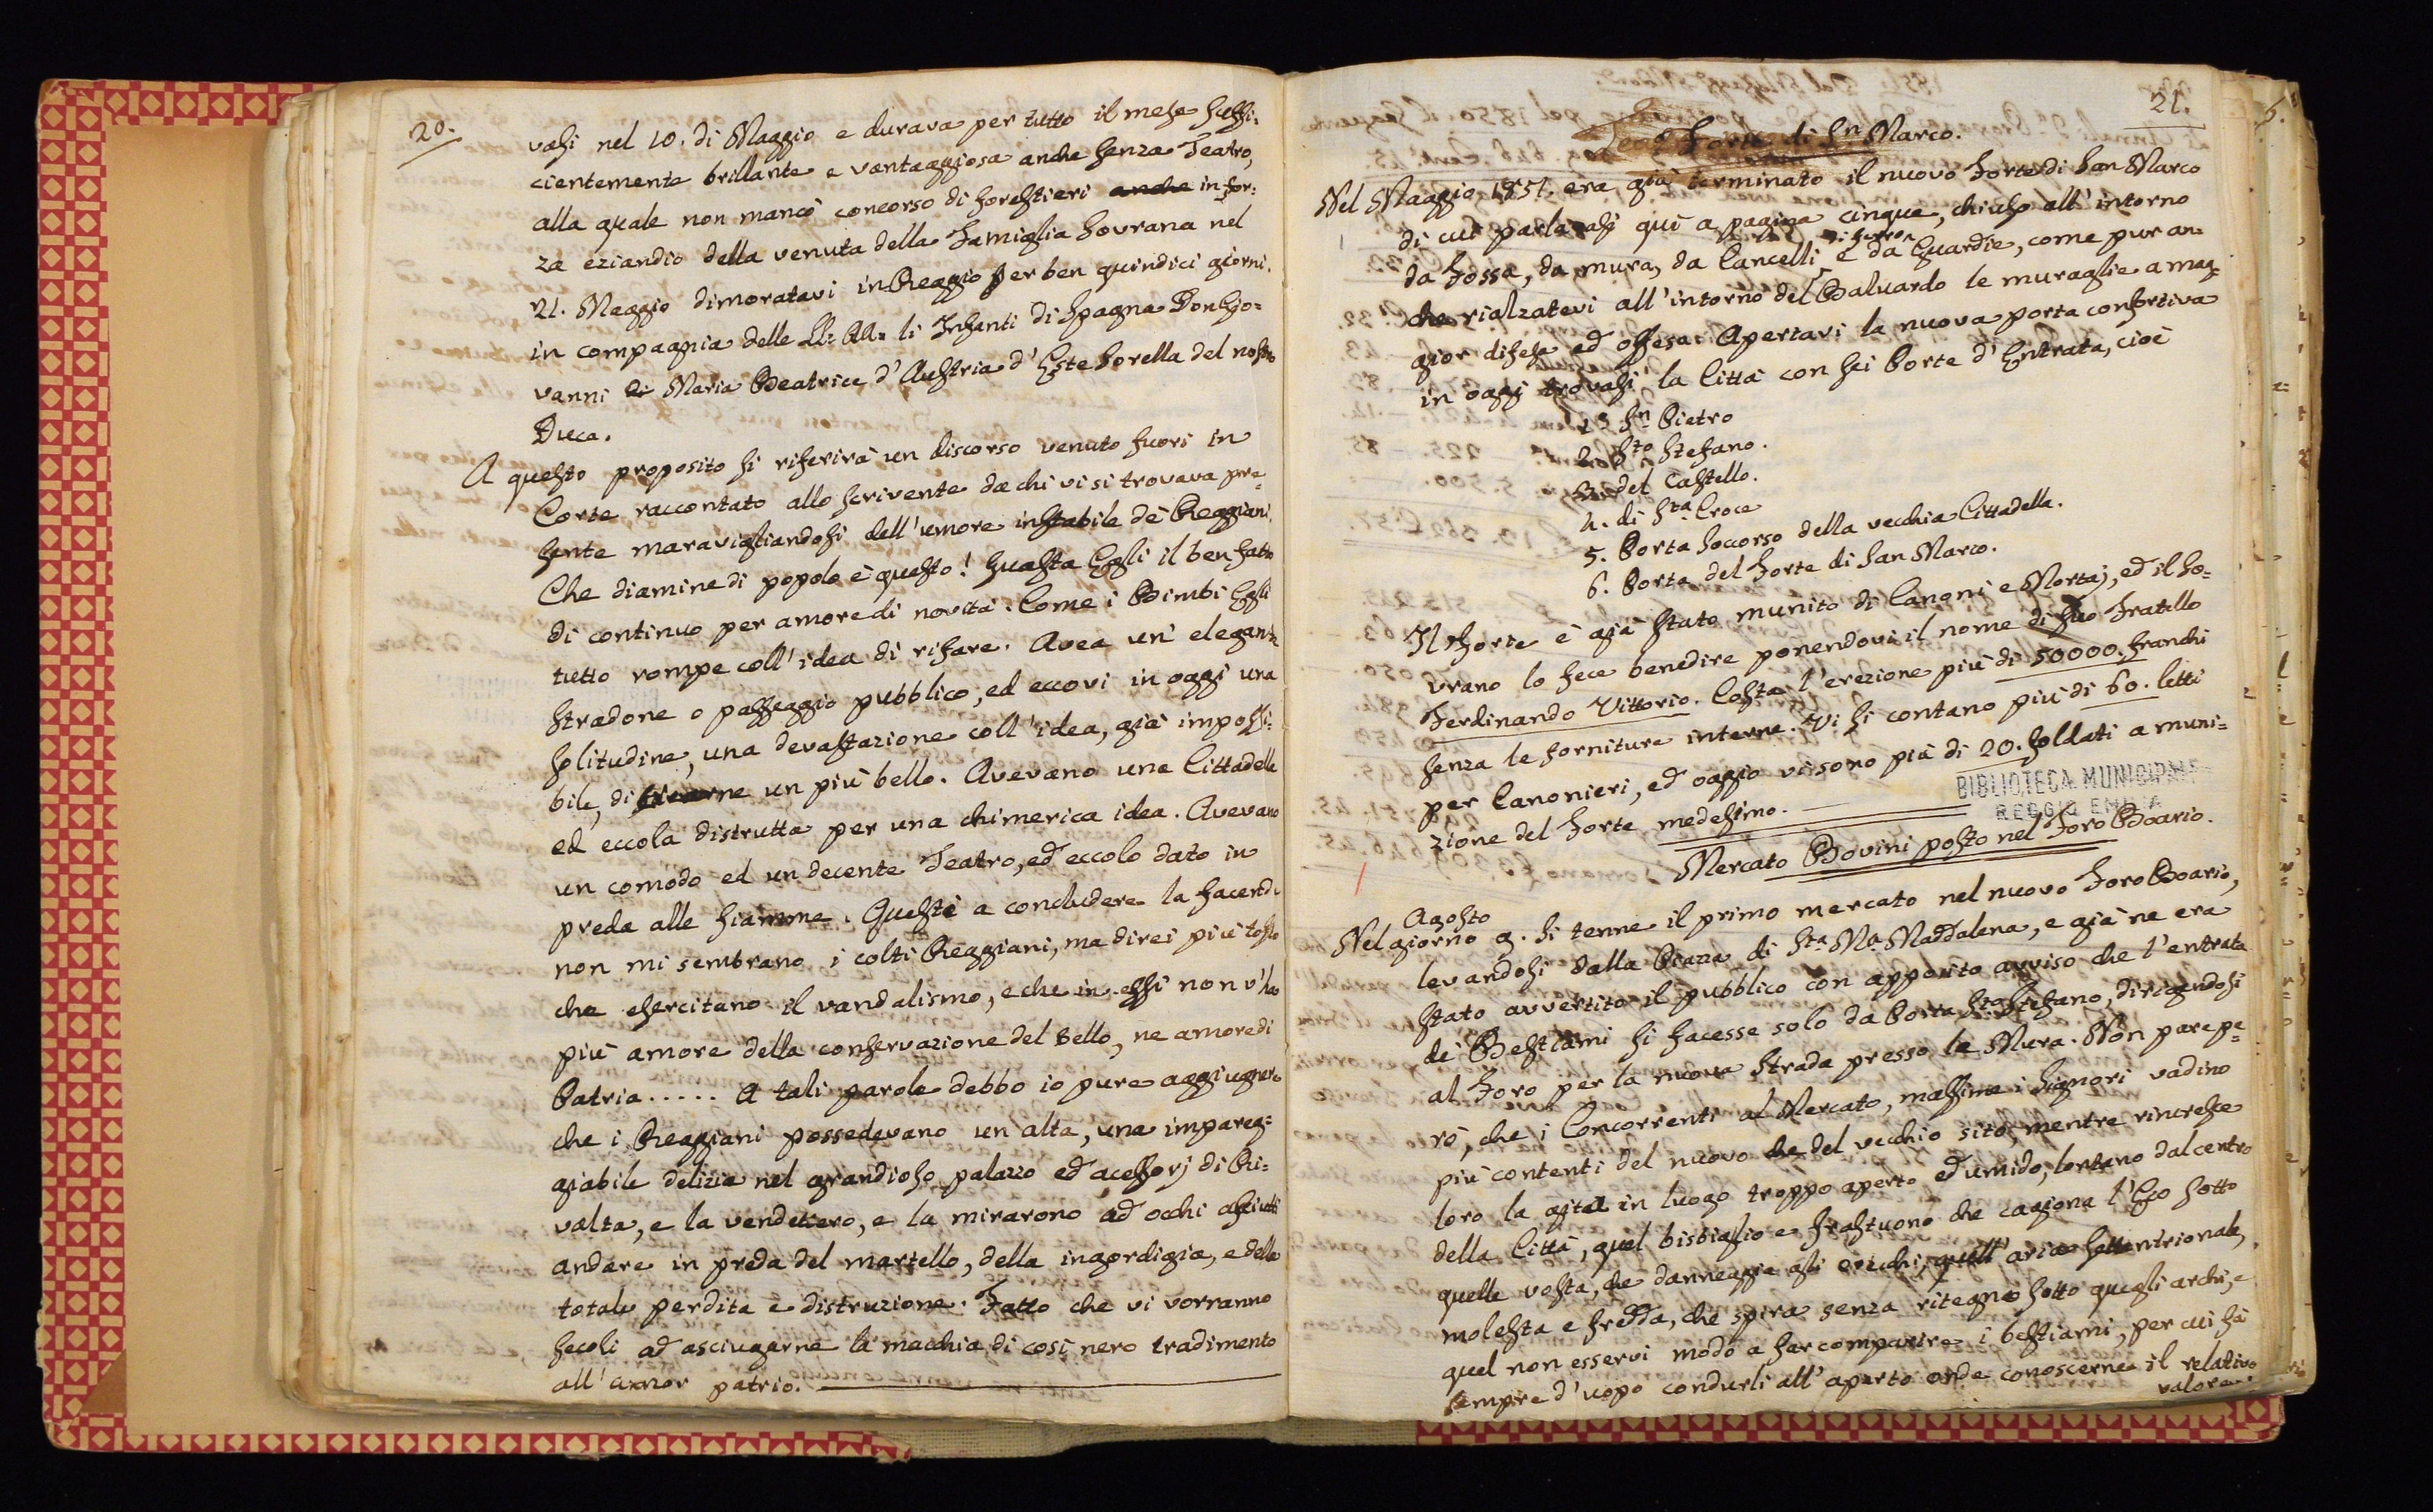 20.
vasi nel 10. di Maggio e durava per tutto il mese suffi:
cientemente brillante e vantaggiosa anche senza Teatro,
alla quale non mancò concorso di forestieri anche in for:
za eziandio della venuta della Famiglia Sovrana nel
21. Maggio dimoratavi in Reggio per ben quindici giorni,
in compagnia delle LL: AA: li Infanti di Spagna Don Gio=
vanni di Maria Beatrice d'Austria d'Este sorella del nostro
Duca.
A questo proposito si riferirà un discorso venuto fuori in
Corte raccontato allo scrivente da chi vi si trovava pre=
sente maravigliandosi dell'umore instabile de Reggiani.
Che diamine di popolo è questo! Guasta Egli il ben fatto
di continuo per amore di novità. Come i Bimbi Egli
tutto rompe coll'idea di rifare. Avea un' elegante
stradone o passeggio pubblico, ed eccovi in oggi una
solitudine, una devastazione coll'idea, già impossi:
bile, di un più bello. Avevano una Cittadella
ed eccola distrutta per una chimerica idea. Avevano
un comodo ed un decente Teatro, ed eccolo dato in
preda alle fiamme. Questi a concludere la facenda
non mi sembrano i colti Reggiani, ma direi più tosto
che esercitano il vandalismo, e che in essi non v'ha
più amore della conservazione del Bello, ne amore di
Patria..... A tali parole debbo io pure aggiugnere
che i Reggiani possedevano un'alta, una impareg=
giabile delizia nel grandioso palazzo ed acessorj di Ri=
valta, e la vendettero, e la mirarono ad occhi asciutti
andare in preda del martello, della ingordigia, e della
totale perdita e distruzione. Fatto che vi vorranno
secoli ad asciugarne la macchia di così nero tradimento
all'amor patrio.
21.
Forte di Sn Marco.
Nel Maggio 1851. era già terminato il nuovo Forte di San Marco
di cui parlavasi quì a pagina cinque, chiuso all'intorno
da Fossa, da mura, da Cancelli di ferro e da Guardie, come pur an=
che rialzatevi all'intorno del Baluardo le muraglie a mag=
gior difesa ed offesa. Apertavi la nuova porta consortiva
in oggi trovasi la Città con sei Porte d'Entrata, cioè
1a Sn Pietro
2. Sto Stefano.
3. del Castello.
4. di Sta Croce
5. Porta Soccorso della vecchia Cittadella.
6. Porta del Forte di San Marco.
Il Forte è già stato munito di Canoni e Mortaj, ed il So=
vrano lo fece benedire ponendovi il nome di suo Fratello
Ferdinando Vittorio. Costa l'erezione più di 50000. franchi
senza le forniture interne. Vi si contano più di 60. letti
per Canonieri, ed oggio vi sono più di 20. soldati a muni=
zione del Forte medesimo.
BIBLIOTECA MUNICIPALE
REGGIO EMILIA
Mercato Bovini posto nel Foro Boario.
Agosto
Nel giorno 9. si tenne il primo mercato nel nuovo Foro Boario,
levandosi dalla Piazza di Sta Ma Maddalena, e già ne era
stato avvertito il pubblico con apposito avviso che l'entrata
de Bestiami si facesse solo da Porta Sto Stefano, dirigendosi
al Foro per la nuova strada presso le Mura. Non pare pe=
rò, che i Concorrenti al Mercato, massime i Signori vadino
più contenti del nuovo che del vecchio sito, mentre rincresce
loro la gita in luogo troppo aperto ed umido, lontano dal centro
della Città, quel bisbiglio e frastuono che cagiona l'Eco sotto
quelle vosta, che danneggia gli orecchi, quell'aria settentrionale,
molesta e fredda, che spira senza ritegno sotto quegli archi, e
quel non esservi modo a far comparire i bestiami, per cui fà
sempre d'uopo condurli all'aperto onde conoscerne il relativo
valore